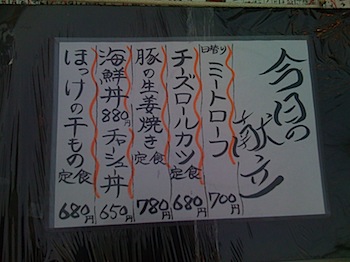 今日の献立
日替り ミートローフ 700円
チーズロールカツ定食 680円
豚の生姜焼き定食 780円
海鮮丼 880円 チャーシュー丼 650円
ほっけの干もの定食 680円